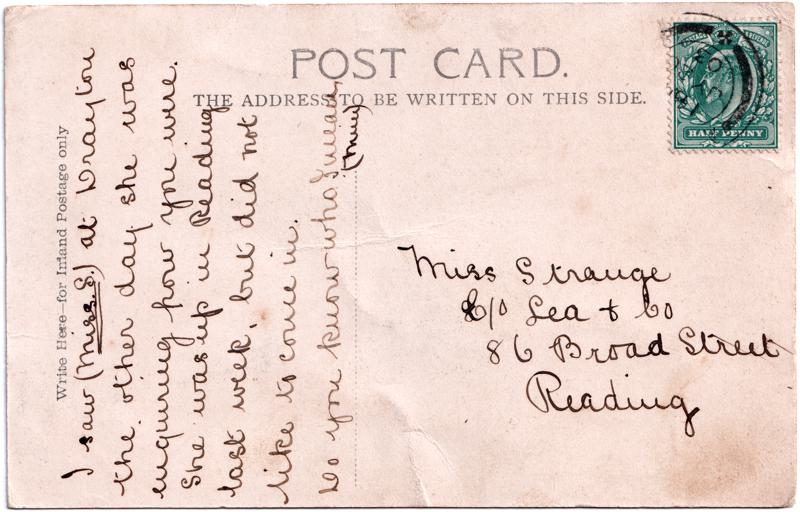 POST CARD.
THE ADDRESS TO BE WRITTEN ON THIS SIDE.
Write Here—for Inland Postage only
I saw (Miss. S.) at Drayton
the other day she was
enquring how you were.
She was up in Reading
last week, but did not
like to come in.
Do you know who I mean,
(Miss)
Miss Strange
c/o Lea & Co
86 Broad Street
Reading
POSTAGE & REVENUE
HALF PENNY